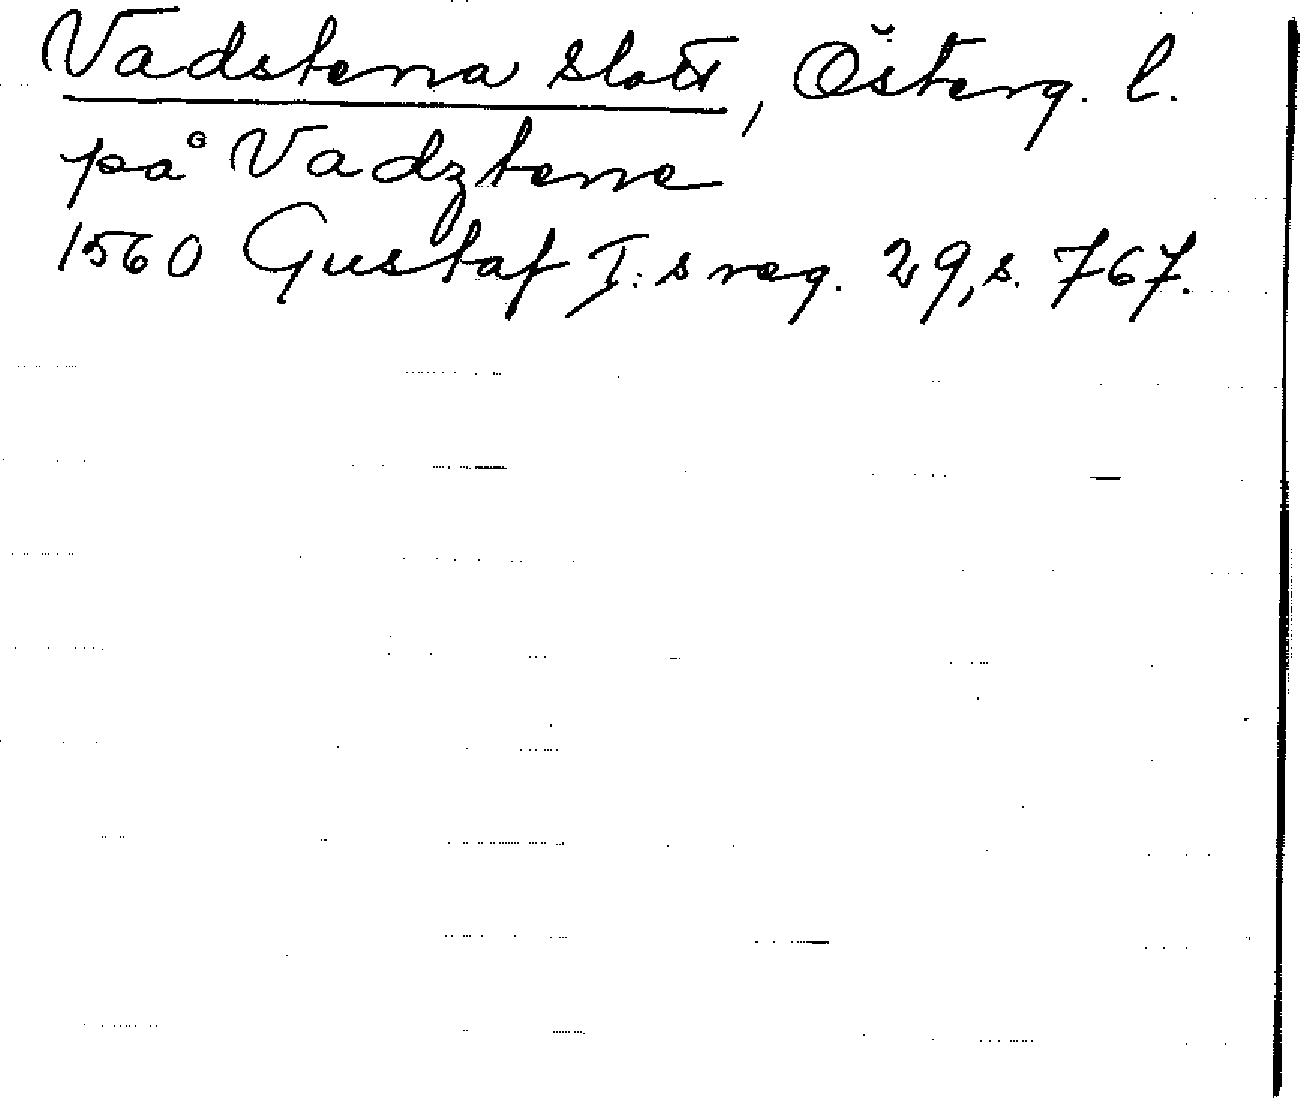 Vadstena slott, Österg. l.
på Vadztene
1560 Gustaf I:s reg. 29, s. 767.